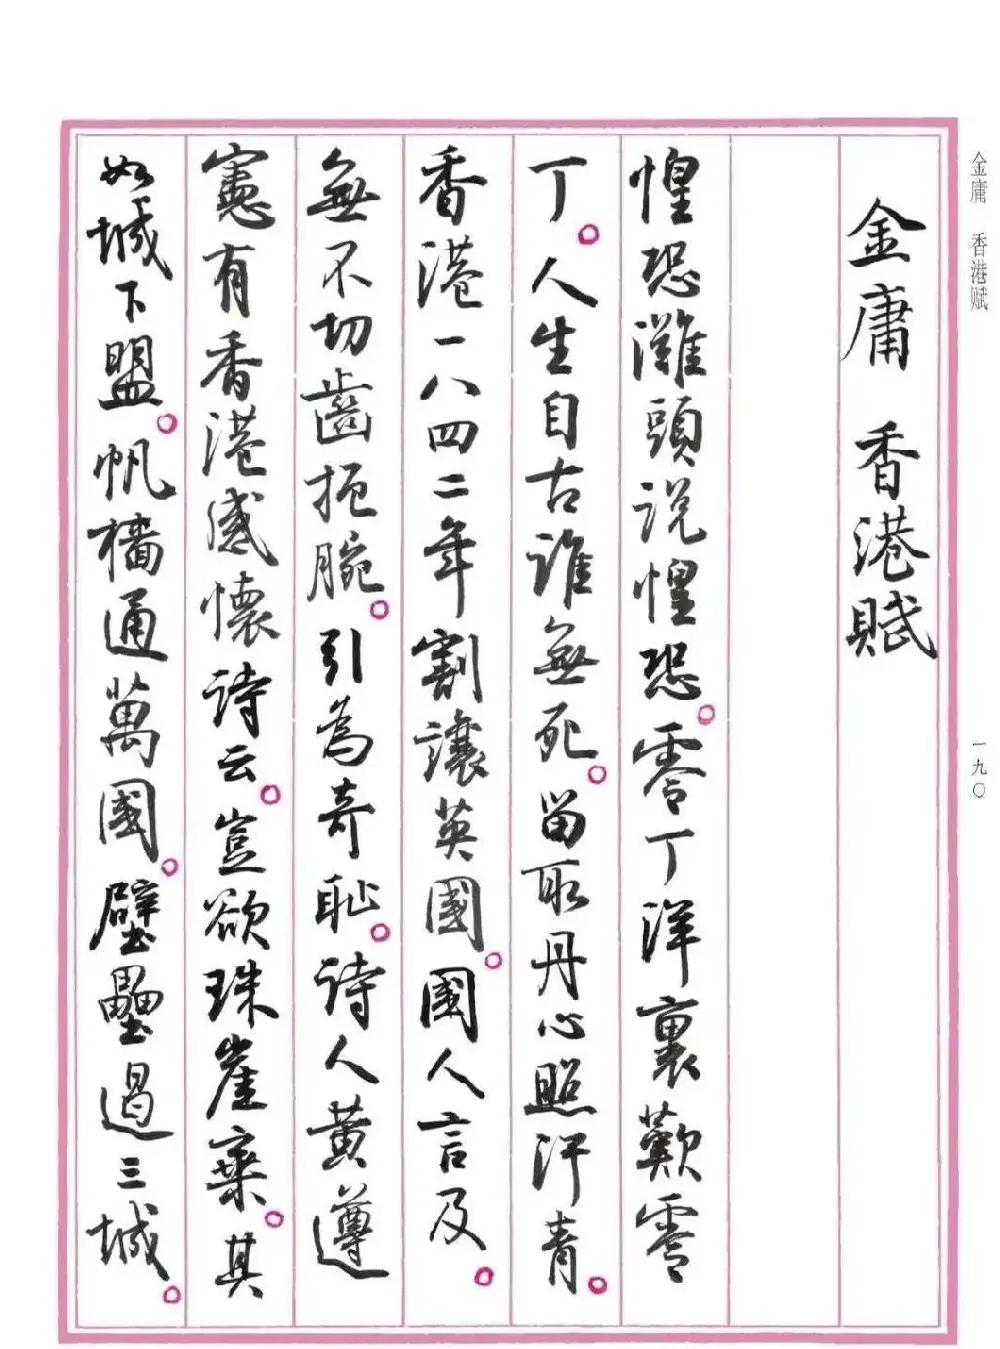 金庸 香港赋
一九〇
金庸 香港賦
惶恐灘頭说惶恐。零丁洋裏歎零
丁。人生自古誰無死。留取丹心照汗青。
香港一八四二年割讓英國。國人言及。
無不切齒扼腕。引為奇耻。诗人黄遵
憲有香港感懷诗云。豈欲珠崖棄。其
如城下盟。帆檣通萬國。壁壘逼三城。